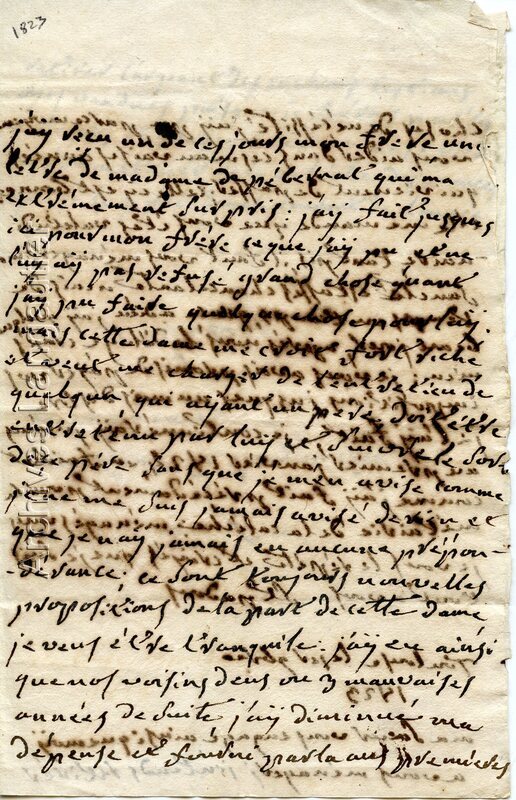 1823
j'ay recu un de ces jours mon frere une
lettre de madame de pébernat qui ma
extrémement surpris : j'aij fait jusques
ici pour mon frére ce que j'aij pu et ne
luij aij pas refusé grand chose quant
j'aij pu faire quelque chose pour luij.
mais cette dame me croit fort riche
et veut me charger de l'entretien de
quelquun qui aijant un pere, doit etre
entretenu par luij et suivre le sort
de ce pére sans que je m'en avise comme
je ne me suis jamais avisé de rien et
que je n'aij jamais eu aucune prépon-
-derance : ce sont toujours nouvelles
propositions de la part de cette dame
je veus étre tranquile : j'aij eu ainsi
que nos voisins deus ou 3 mauvaises
années de suite j'aij diminué ma
dépense et fourni par la aus premiéres
Archives